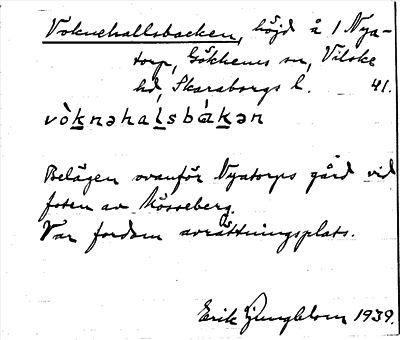 Voknehallsbacken, höjd å 1 Nya-
torp, Gökhems sn, Vilske
hd, Skaraborgs l. 41.
vòknəhalsbákən
Belägen ovanför Nyatorps gård vid
foten av Mösseberg.
Var fordom avrättningsplats.
Erik Ljungblom 1939.